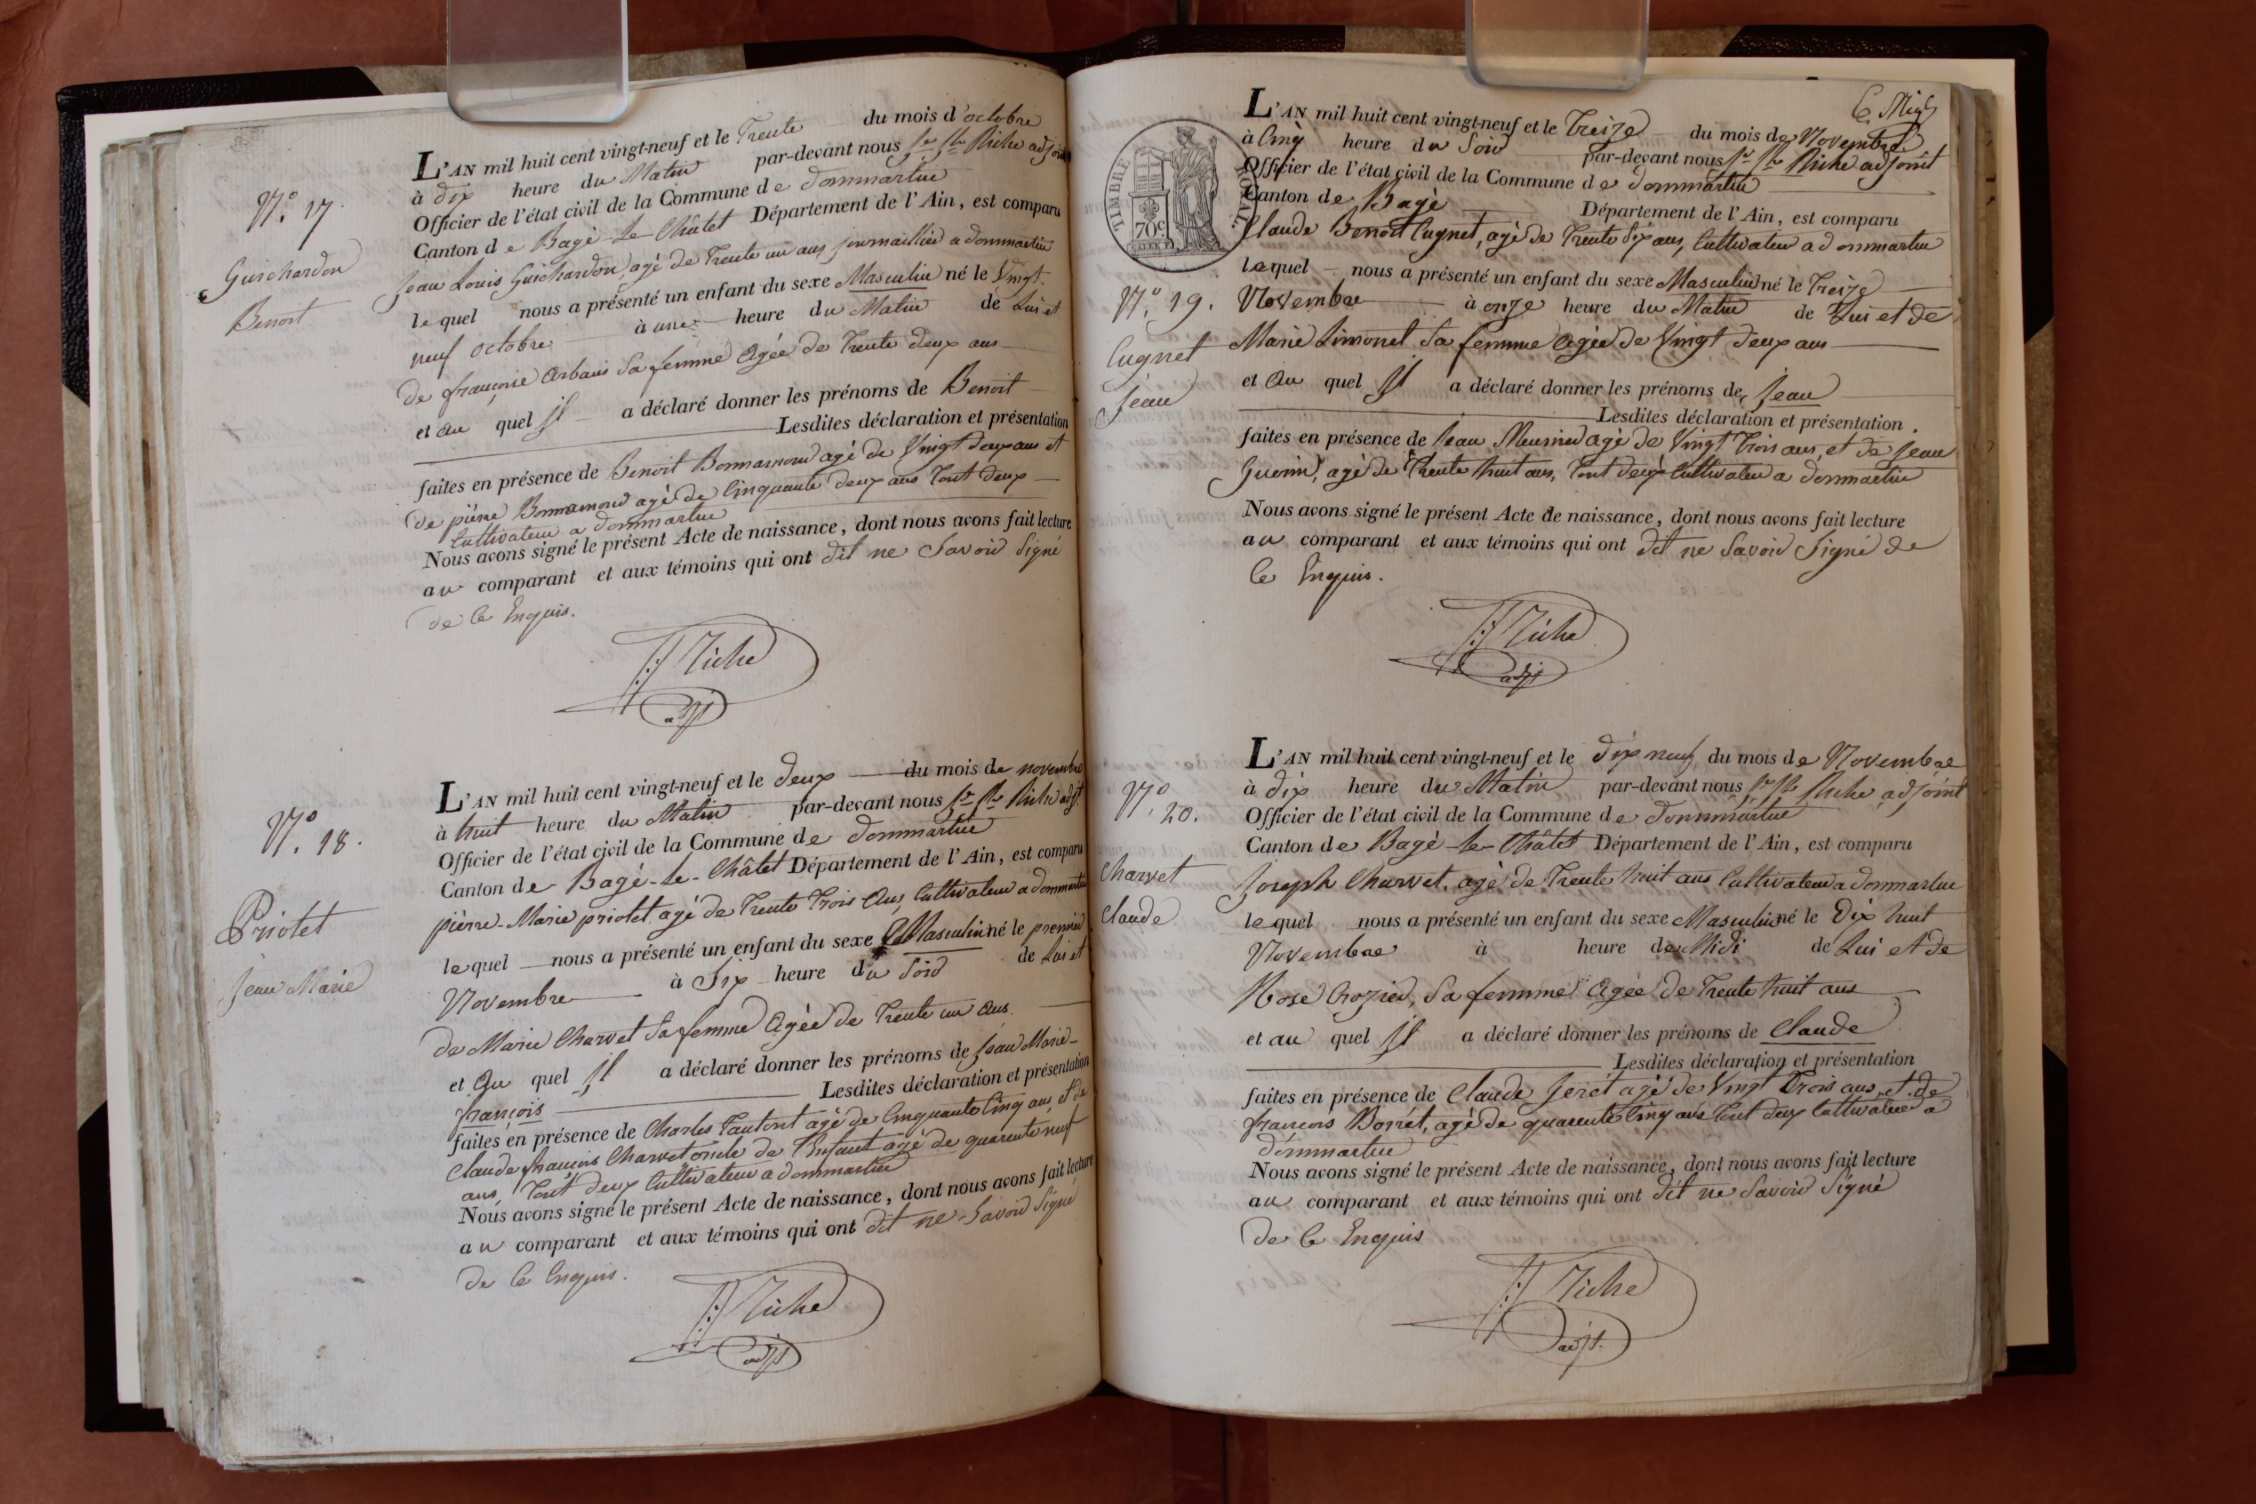 N.º 17.
Guichardon
Benoit
L'AN mil huit cent vingt-neuf et le Trente du mois d'octobre
à dix heure du Matin par-devant nous Riche adjoint
Officier de l'état civil de la Commune de dommartin
Canton de Bagé-le-Châtel Département de l'Ain, est comparu
Jean Louis Guichardon, agé de Trente un ans journaillier a dommartin
lequel nous a présenté un enfant du sexe Masculin né le Vingt-
neuf octobre à une heure du Matin de Lui et
de françoise Arbain Sa femme Agée de Trente deux ans
et au quel Il a déclaré donner les prénoms de Benoit
Lesdites déclaration et présentation
faites en présence de Benoit Bonnamour agé de Vingt deux ans et
de pierre Bonnamour agé de Cinquante deux ans Tout deux
Cultivateur a dommartin
Nous avons signé le présent Acte de naissance, dont nous avons fait lecture
au comparant et aux témoins qui ont dit ne Savoir Signé
de Ce Enquis.
Riche
adjt
N.º 18.
Priolet
Jean Marie
L'AN mil huit cent vingt-neuf et le deux du mois de novembre
à huit heure du Matin par-devant nous Riche adjt.
Officier de l'état civil de la Commune de dommartin
Canton de Bagé-le-Châtel Département de l'Ain, est comparu
pierre-Marie priolet agé de Trente Trois Ans, Cultivateur a dommartin
lequel nous a présenté un enfant du sexe Masculin né le premier
Novembre à Six heure du Soir de Lui et
de Marie Charvet Sa femme Agée de Trente un Ans.
et Au quel Il a déclaré donner les prénoms de Jean Marie-
françois Lesdites déclaration et présentation
faites en présence de Charles Tautont agé de Cinquante Cinq ans, et de
Claude françois Charvet oncle de l'Enfant agé de quarente neuf
ans, Tout deux Cultivateur a dommartin
Nous avons signé le présent Acte de naissance, dont nous avons fait lecture
au comparant et aux témoins qui ont dit ne Savoir Signé
de Ce Enquis.
Riche
adjt
TIMBRE ROYAL
70c
N.º 19.
Cugnet
Jean
L'AN mil huit cent vingt-neuf et le Treize du mois de Novembre
à Cinq heure du Soir par-devant nous Riche adjoint
Officier de l'état civil de la Commune de dommartin
Canton de Bagé Département de l'Ain, est comparu
Claude Benoit Cugnet, agé de Trente Six ans, Cultivateur a dommartin
lequel nous a présenté un enfant du sexe Masculin né le Treize
Novembre à onze heure du Matin de Lui et de
Marie Limonet Sa femme Agée de Vingt deux ans
et Au quel Il a déclaré donner les prénoms de Jean
Lesdites déclaration et présentation
faites en présence de Jean Meunier agé de Vingt Trois ans, et de Jean
Guerin, agé de Trente huit ans, Tout deux Cultivateur a dommartin
Nous avons signé le présent Acte de naissance, dont nous avons fait lecture
au comparant et aux témoins qui ont dit ne Savoir Signé de
Ce Enquis.
Riche
adjt
N.º 20.
Charvet
Claude
L'AN mil huit cent vingt-neuf et le dix neuf du mois de Novembre
à dix heure du Matin par-devant nous Riche adjoint
Officier de l'état civil de la Commune de dommartin
Canton de Bagé-le-Châtel Département de l'Ain, est comparu
Joseph Charvet, agé de Trente huit ans Cultivateur a dommartin
lequel nous a présenté un enfant du sexe Masculin né le Dix huit
Novembre à heure de Midi de Lui et de
Rose Crozier, Sa femme Agée de Trente huit ans
et au quel Il a déclaré donner les prénoms de Claude
Lesdites déclaration et présentation
faites en présence de Claude Jeret agé de Vingt Trois ans, et de
françois Borret, agé de quarente Cinq ans Tout deux Cultivateur a
dommartin
Nous avons signé le présent Acte de naissance, dont nous avons fait lecture
au comparant et aux témoins qui ont dit ne Savoir Signé
de Ce Enquis
Riche
adjt.